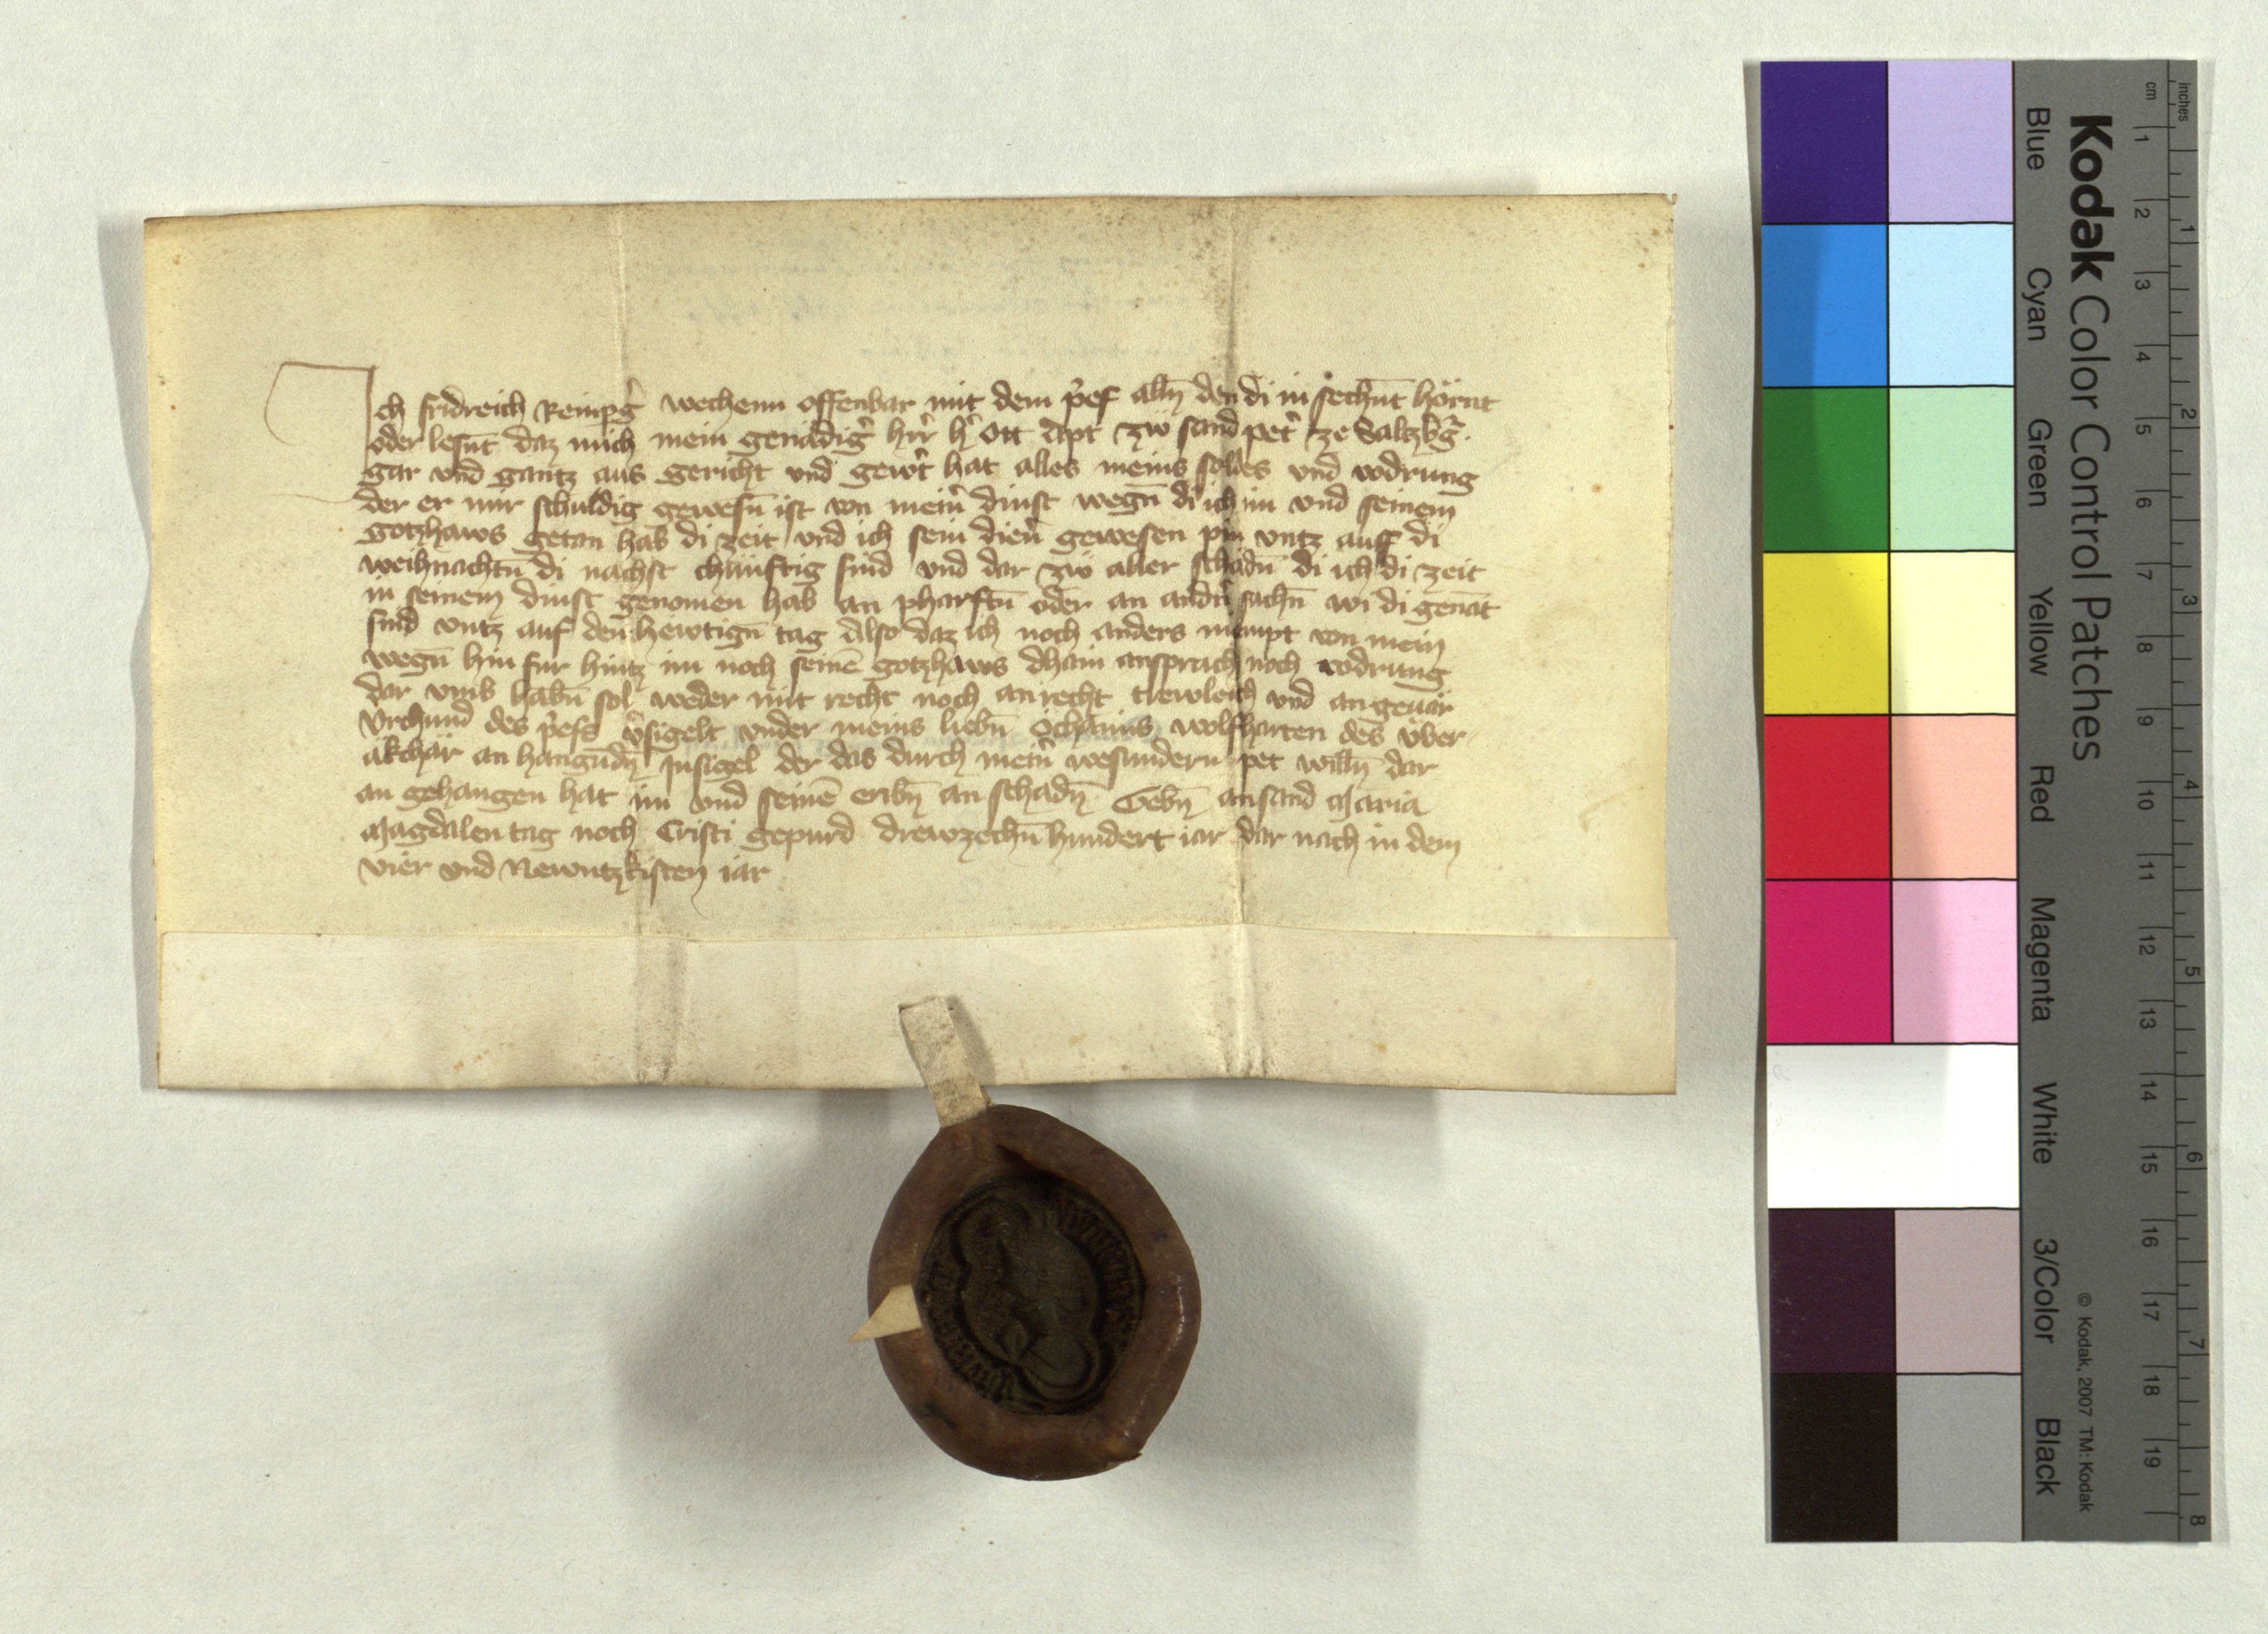 Ich fridreich Rempg̉ wechenn offenbar mit dem p̉ef alln̄ den di in sechn̄t hörnt
oder lesn̄t daz mich mein genädig̉ hr̉r h̉ Ott Äpt zẘ sand pet̉ ze Saltzbg̉.
gar vnd gantz aus gericht vnd gew̉t hat alles meins soldes vnd vodrung
der er mir schuldig gewesn̄ ist von mein̉ dinst wegn̄ di ich im vnd seinem
gotzhaws getan hab di zeit vnd ich sein dien̉ gewesen pin vntz auff di
weihnachtn̄ di nächst chünftig sind vnd dar zẘ aller schädn̄ di ich di zeit
in seinem dinst genomen hab an pharftn̄ oder an andn̉ sachn̄ wi di genāt
sind vntz auf den hewtign̄ tag Also daz ich noch anders niempt von mein
wegn̄ hin für hintz im noch seinē gotzhaws dhain ansprach noch vodrung
dar vmb habn̄ sol weder mit recht noch an recht trewleich vnd an geuär
Vrchund des p̉efs v̉sigelt vnder meins liebn̄ Öchaims wolfharten des über
äkchär an hangūdn̄ Insigel der das durch mein̉ wesundern pet willn̄ dar
an gehangen hat im vnd seinē eribn̄ an schadn̄ Gebn̄ an sand Maria
Magdalen tag noch Cristi gepurd drewzechn̄ hundert iar dar nach in dem
vier vnd Newntzkisten iar
Kodak Color Control Patches
Blue Cyan Green Yellow Red Magenta White 3/Color Black
© Kodak, 2007 TM: Kodak
cm 1 2 3 4 5 6 7 8 9 10 11 12 13 14 15 16 17 18 19
inches 1 2 3 4 5 6 7 8